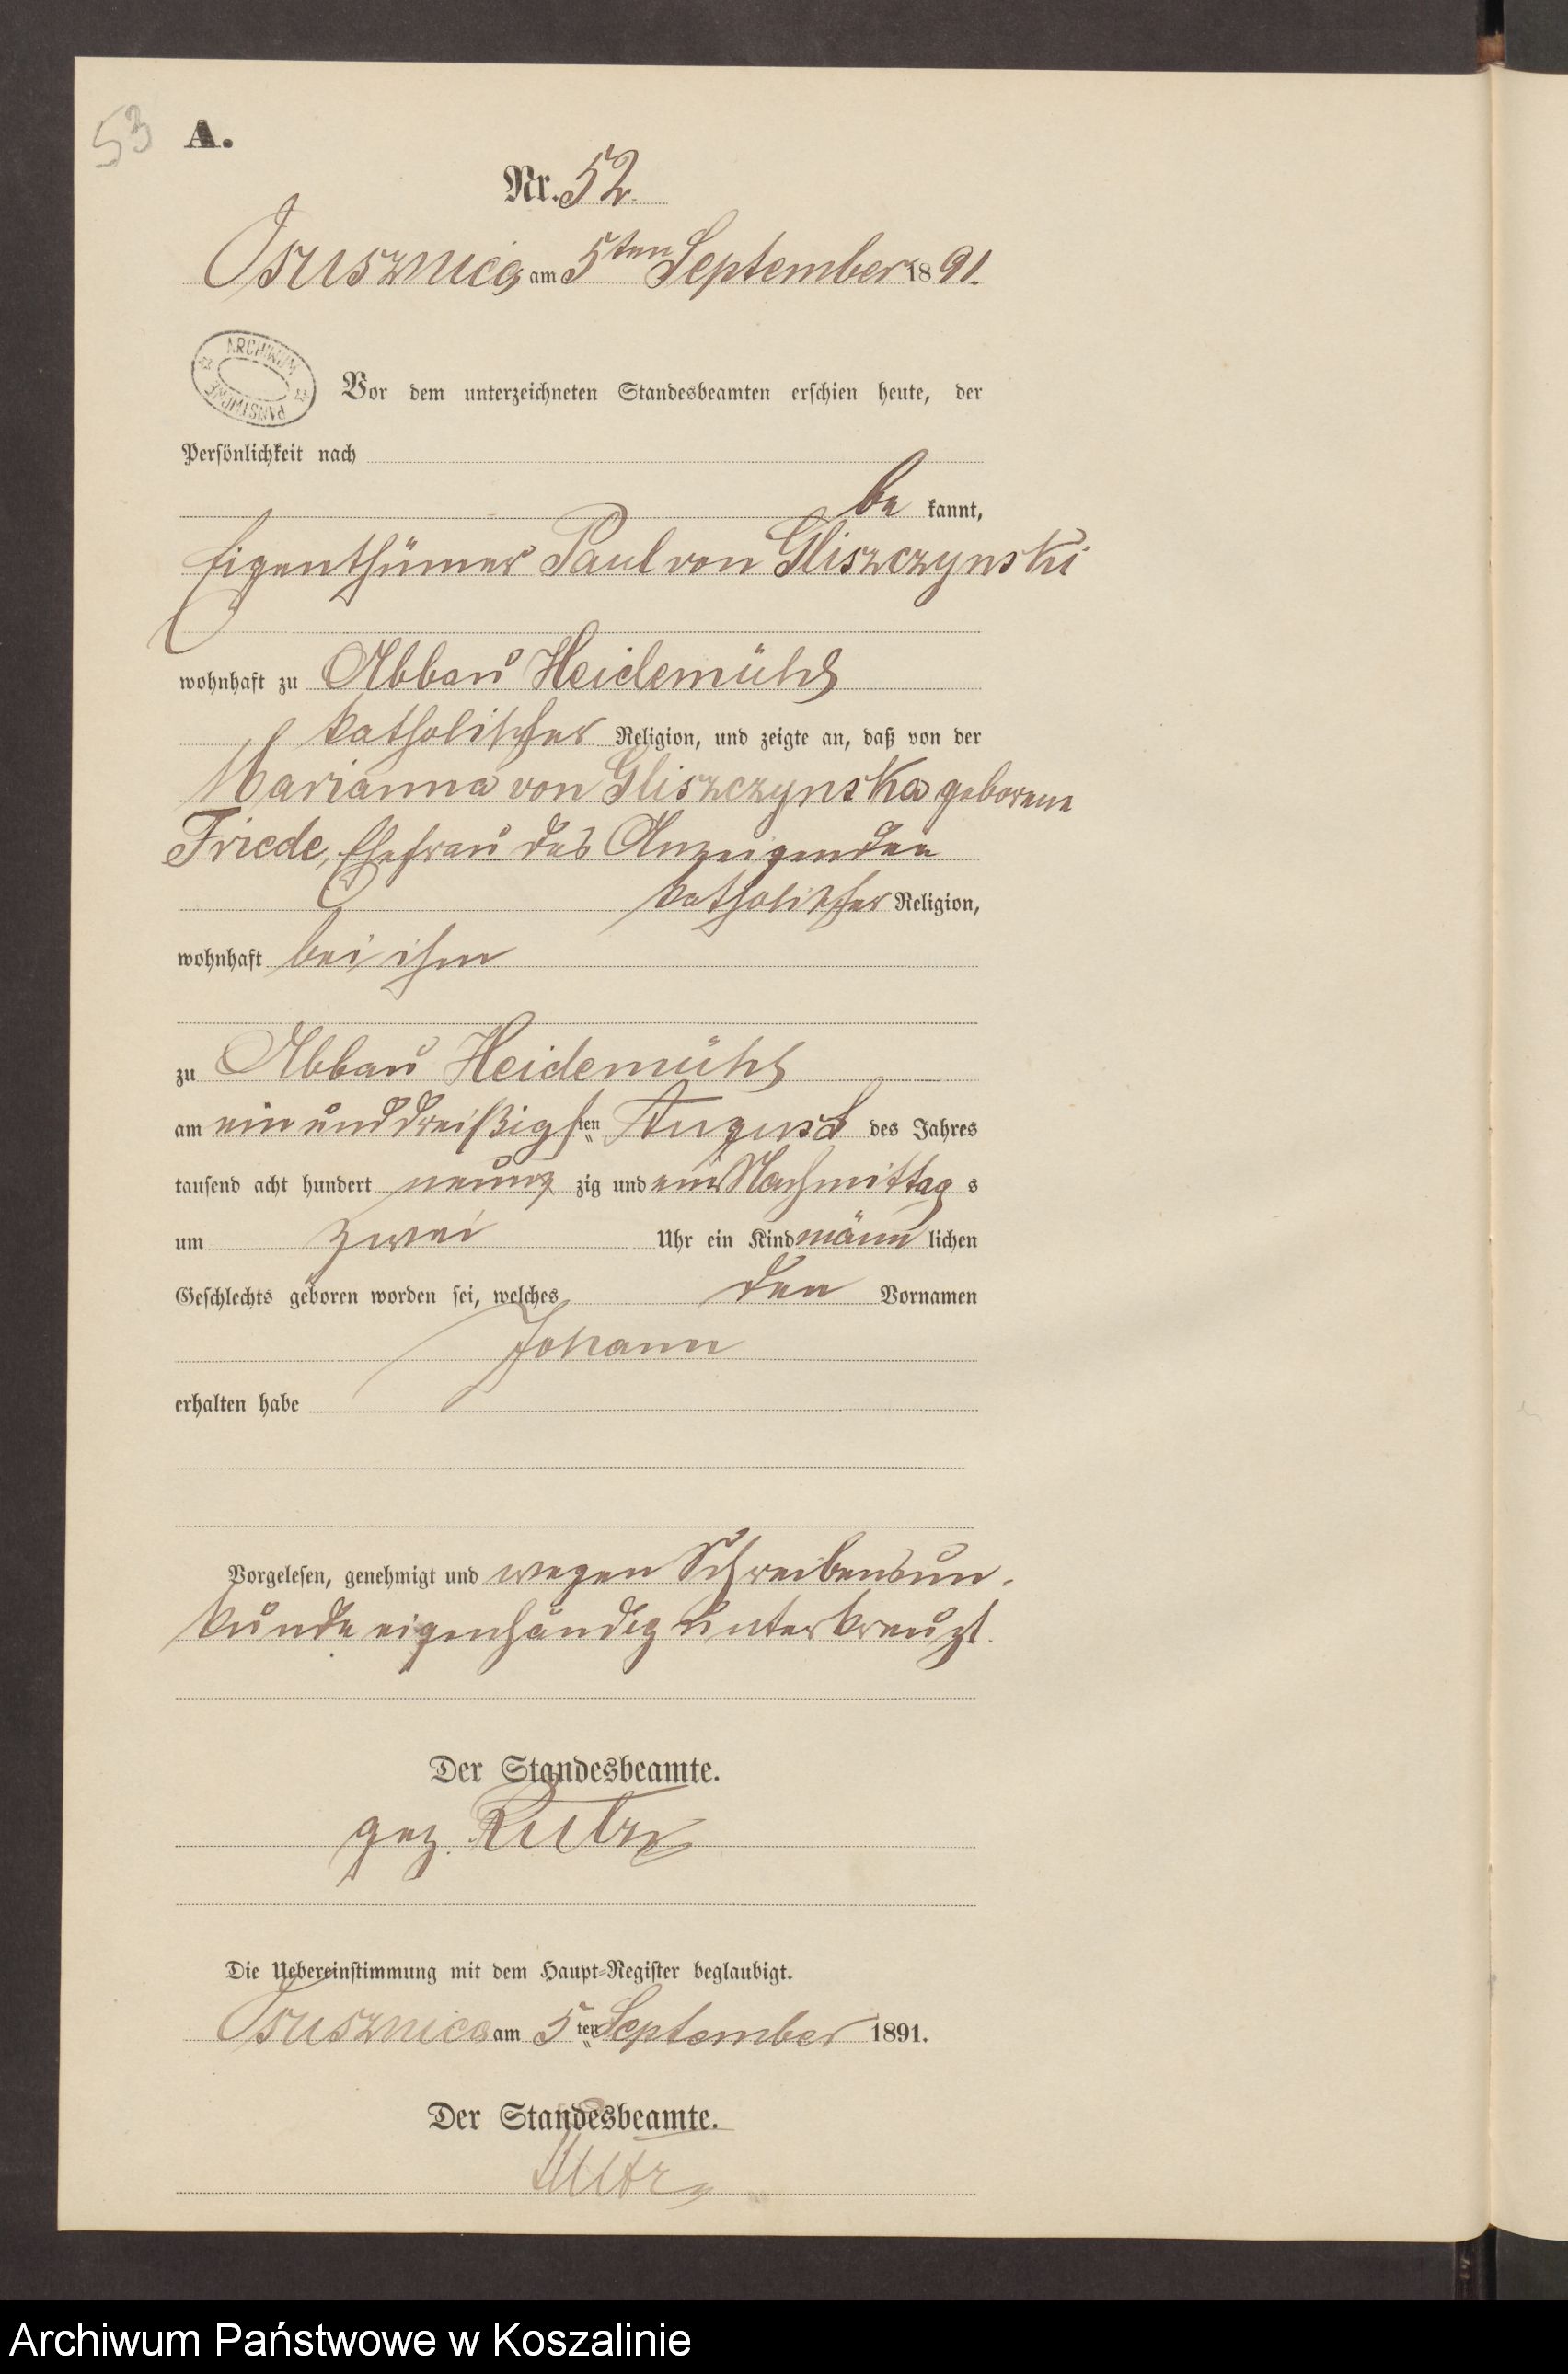 53
A.
Nr. 52.
Osusznica am 5ten September 1891.
ARCHIWUM PAŃSTWOWE
Vor dem unterzeichneten Standesbeamten erschien heute, der
Persönlichkeit nach
be kannt,
Eigenthümer Paul von Gliszczynski
wohnhaft zu Abbau Heidemühl
katholischer Religion, und zeigte an, daß von der
Marianna von Gliszczynska geborene
Friede, Ehefrau des Anzeigenden
katholischer Religion,
wohnhaft bei ihm
zu Abbau Heidemühl
am ein und dreißigsten August des Jahres
tausend acht hundert neunzig und ein Nachmittags
um zwei Uhr ein Kind männlichen
Geschlechts geboren worden sei, welches den Vornamen
Johann
erhalten habe
Vorgelesen, genehmigt und wegen Schreibensun-
kunde eigenhändig unterkreuzt.
Der Standesbeamte.
gez.
Die Uebereinstimmung mit dem Haupt-Register beglaubigt.
Osusznica am 5ten September 1891.
Der Standesbeamte.
Archiwum Państwowe w Koszalinie